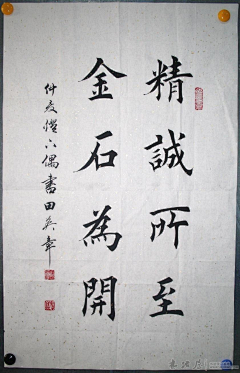 精誠所至
金石為開
仲夏偶書田英章